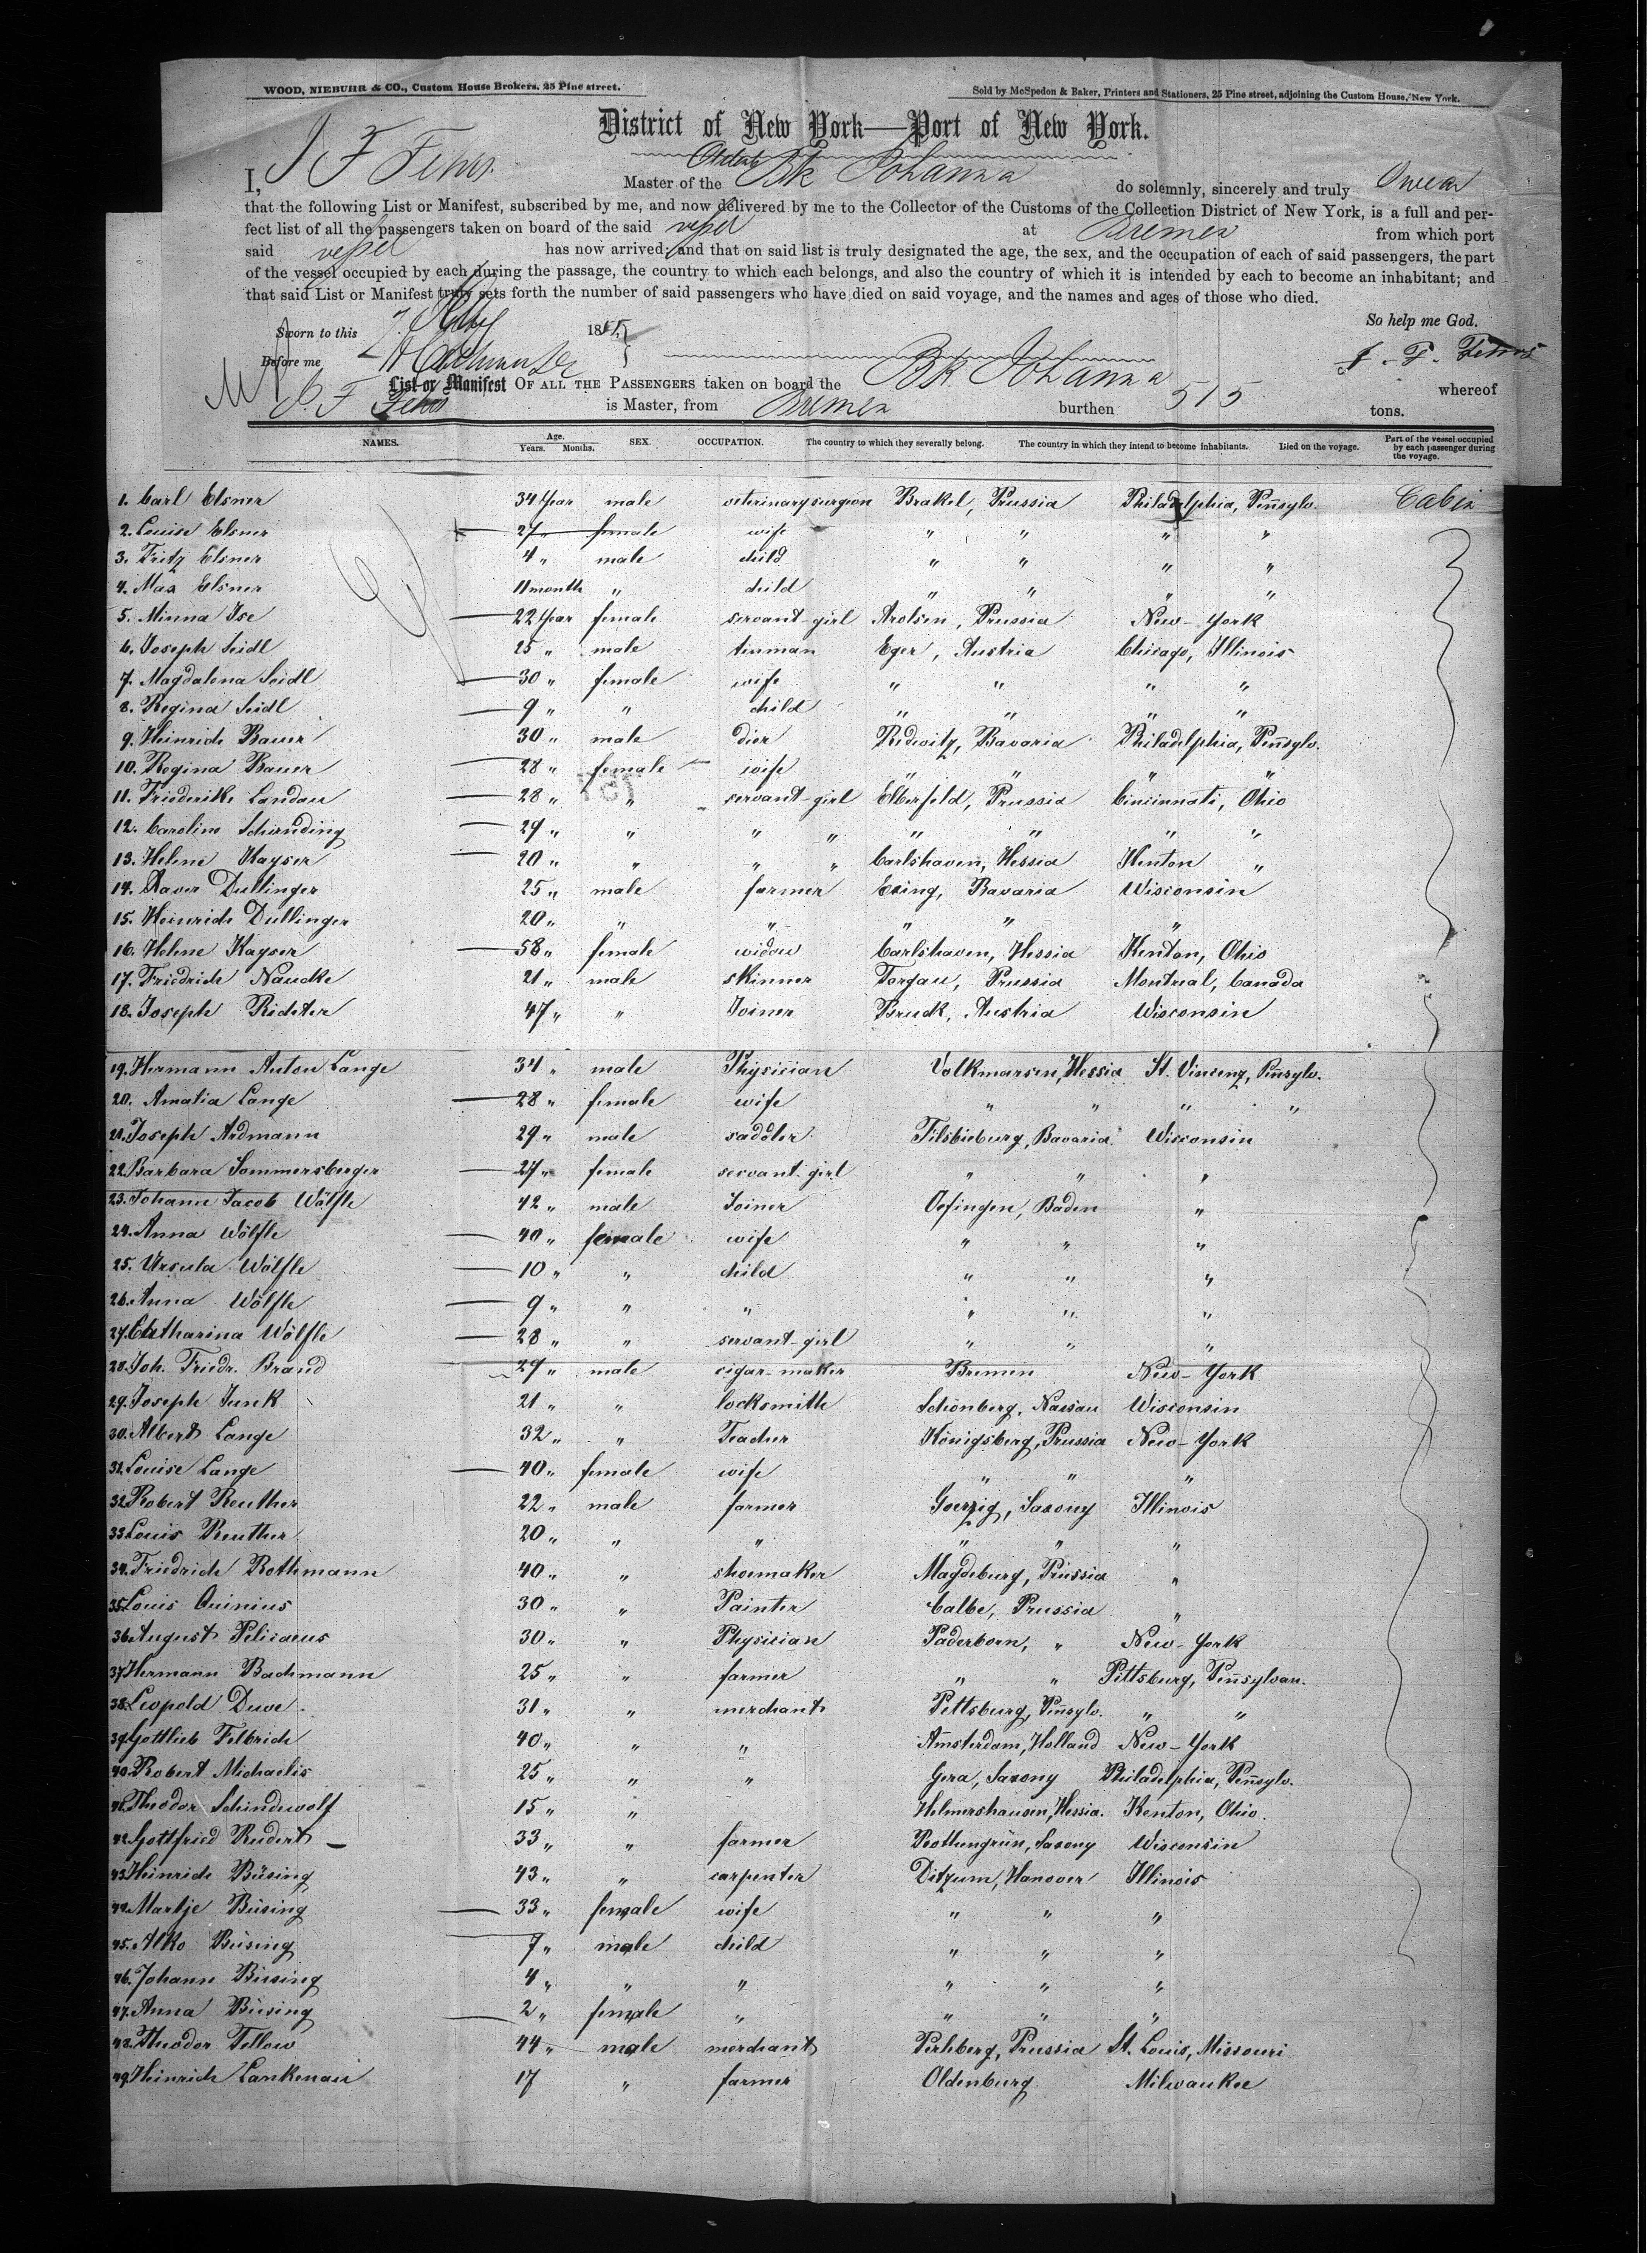 WOOD, NIEBUHR & CO., Custom House Brokers. 25 Pine street.
Sold by McSpedon & Baker, Printers and Stationers, 25 Pine street, adjoining the Custom House, New York.
District of New York—Port of New York.
I, J F Fehrs Master of the Bk Johanna do solemnly, sincerely and truly Swear
that the following List or Manifest, subscribed by me, and now delivered by me to the Collector of the Customs of the Collection District of New York, is a full and per-
fect list of all the passengers taken on board of the said vessel at Bremen from which port
said vessel has now arrived; and that on said list is truly designated the age, the sex, and the occupation of each of said passengers, the part
of the vessel occupied by each during the passage, the country to which each belongs, and also the country of which it is intended by each to become an inhabitant; and
that said List or Manifest truly sets forth the number of said passengers who have died on said voyage, and the names and ages of those who died.
So help me God.
Sworn to this 186
Before me J. F. Fehrs
List or Manifest OF ALL THE PASSENGERS taken on board the Bk. Johanna whereof
J. F Fehrs is Master, from Bremen burthen 515 tons.
NAMES. Age. Years. Months. SEX. OCCUPATION. The country to which they severally belong. The country in which they intend to become inhabitants. Died on the voyage. Part of the vessel occupied by each passenger during the voyage.
1. Carl Elsner 34 Year male veterinary surgeon Brakel, Prussia Philadelphia, Peñsylv. Cabin
2. Louise Elsner 27 " female wife " " " "
3. Fritz Elsner 4 " male child " " " "
4. Max Elsner 11 month " child " " " "
5. Minna Ise 22 Year female servant-girl Arolsen, Prussia New-York
6. Joseph Seidl 25 " male tinman Eger, Austria Chicago, Illinois
7. Magdalena Seidl 30 " female wife " " " "
8. Regina Seidl 9 " " child " " " "
9. Heinrich Bauer 30 " male dier Redwitz, Bavaria Philadelphia, Peñsylv.
10. Regina Bauer 28 " female wife " " " "
11. Friederike Landau 28 " " servant-girl Elberfeld, Prussia Cincinnati, Ohio
12. Caroline Schanding 29 " " " " " " " "
13. Helene Kayser 20 " " " " Carlshaven, Hessia Kenton "
14. Xaver Dullinger 25 " male farmer Exing, Bavaria Wisconsin
15. Heinrich Dullinger 20 " " " " " "
16. Helene Kayser 58 " female widow Carlshaven, Hessia Kenton, Ohio
17. Friedrich Naucke 21 " male skinner Torgau, Prussia Montreal, Canada
18. Joseph Richter 47 " " Joiner Bruck, Austria Wisconsin
19. Hermann Anton Lange 34 " male Physician Volkmarsen, Hessia St. Vincenz, Peñsylv.
20. Amalia Lange 28 " female wife " " " "
21. Joseph Ardmann 29 " male saddler Filsbieburg, Bavaria Wisconsin
22. Barbara Sommersberger 27 " female servant-girl " " "
23. Johann Jacob Wölfle 42 " male Joiner Oefingen, Baden "
24. Anna Wölfle 40 " female wife " " "
25. Ursula Wölfle 10 " " child " " "
26. Anna Wölfle 9 " " " " " "
27. Catharina Wölfle 28 " " servant-girl " " "
28. Joh. Friedr. Brand 29 " male cigar-maker Bremen New-York
29. Joseph Junk 21 " " locksmith Schönberg, Nassau Wisconsin
30. Albert Lange 32 " " Teacher Königsberg, Prussia New-York
31. Louise Lange 40 " female wife " " "
32. Robert Reuther 22 " male farmer Goerzig, Saxony Illinois
33. Louis Reuther 20 " " " " " "
34. Friedrich Rothmann 40 " " shoemaker Magdeburg, Prussia "
35. Louis Quinius 30 " " Painter Calbe, Prussia "
36. August Pelicaeus 30 " " Physician Paderborn, " New-York
37. Hermann Bachmann 25 " " farmer " " Pittsburg, Peñsylvan.
38. Leopold Duwe 31 " " merchant Pettsburg, Peñsylv. " "
39. Gottlieb Felbrich 40 " " " Amsterdam, Holland New-York
40. Robert Michaelis 25 " " " Gera, Saxony Philadelphia, Peñsylv.
41. Theodor Schindewolf 15 " " Helmershausen, Hessia. Kenton, Ohio.
42. Gottfried Rudert 33 " " farmer Poothengrün, Saxony Wisconsin
43. Heinrich Büsing 43 " " carpenter Ditzum, Hanover Illinois
44. Martje Büsing 33 " female wife " " "
45. Alko Büsing 7 " male child " " "
46. Johann Büsing 4 " " " " " "
47. Anna Büsing 2 " female " " " "
48. Theodor Tellow 44 " male merchant Perleberg, Prussia St. Louis, Missouri
49. Heinrich Lankenau 17 " farmer Oldenburg Milwaukee